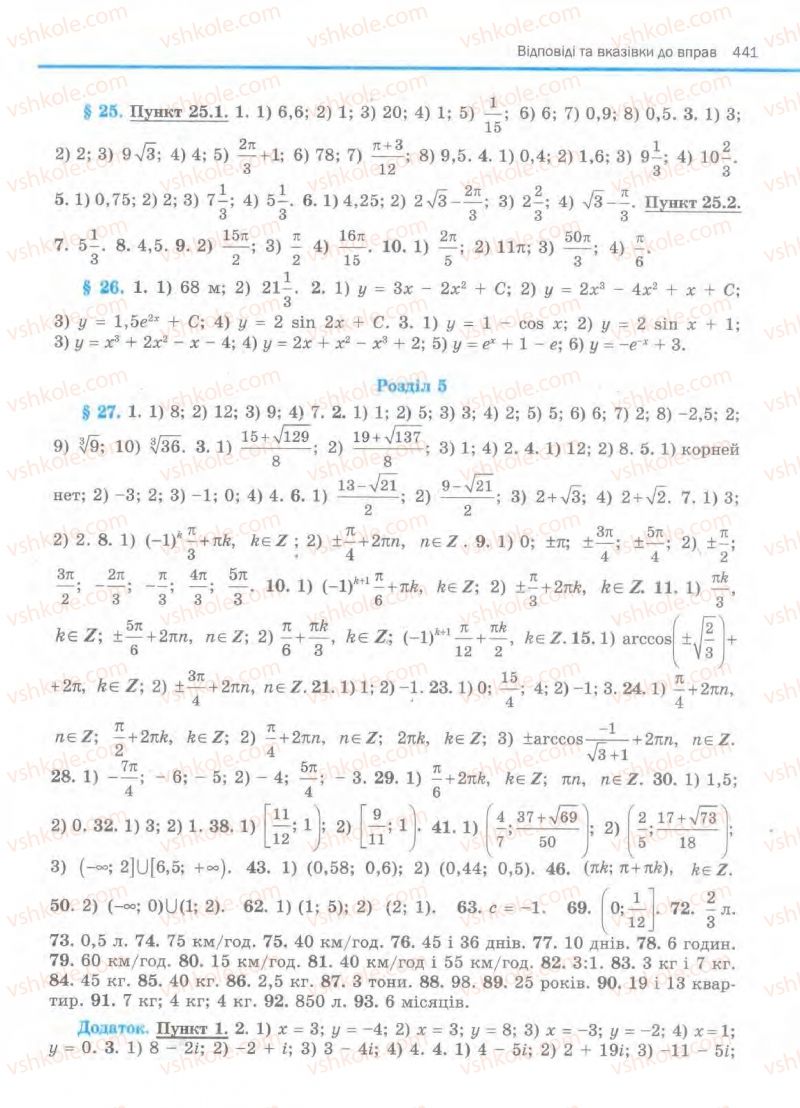 Відповіді та вказівки до вправ 441
§ 25. Пункт 25.1. 1. 1) 6,6; 2) 1; 3) 20; 4) 1; 5) 1/15; 6) 6; 7) 0,9; 8) 0,5. 3. 1) 3;
2) 2; 3) 9√3; 4) 4; 5) 2π/3+1; 6) 78; 7) (π+3)/12; 8) 9,5. 4. 1) 0,4; 2) 1,6; 3) 9 1/3; 4) 10 2/3.
5. 1) 0,75; 2) 2; 3) 7 1/3; 4) 5 1/3. 6. 1) 4,25; 2) 2√3−2π/3; 3) 2 2/3; 4) √3−π/3. Пункт 25.2.
7. 5 1/3. 8. 4,5. 9. 2) 15π/2; 3) π/2 4) 16π/15. 10. 1) 2π/5; 2) 11π; 3) 50π/3; 4) π/6.
§ 26. 1. 1) 68 м; 2) 21 1/3. 2. 1) y = 3x − 2x² + C; 2) y = 2x³ − 4x² + x + C;
3) y = 1,5e²ˣ + C; 4) y = 2 sin 2x + C. 3. 1) y = 1 − cos x; 2) y = 2 sin x + 1;
3) y = x³ + 2x² − x − 4; 4) y = 2x + x² − x³ + 2; 5) y = eˣ + 1 − e; 6) y = −e⁻ˣ + 3.
Розділ 5
§ 27. 1. 1) 8; 2) 12; 3) 9; 4) 7. 2. 1) 1; 2) 5; 3) 3; 4) 2; 5) 5; 6) 6; 7) 2; 8) −2,5; 2;
9) ∛9; 10) ∛36. 3. 1) (15+√129)/8; 2) (19+√137)/8; 3) 1; 4) 2. 4. 1) 12; 2) 8. 5. 1) корней
нет; 2) −3; 2; 3) −1; 0; 4) 4. 6. 1) (13−√21)/2; 2) (9−√21)/2; 3) 2+√3; 4) 2+√2. 7. 1) 3;
2) 2. 8. 1) (−1)^k π/3+πk, k∈Z; 2) ±π/4+2πn, n∈Z. 9. 1) 0; ±π; ±3π/4; ±5π/4; 2) ±π/2;
3π/2; −2π/3; −π/3; 4π/3; 5π/3. 10. 1) (−1)^(k+1) π/6+πk, k∈Z; 2) ±π/3+2πk, k∈Z. 11. 1) πk/3,
k∈Z; ±5π/6+2πn, n∈Z; 2) π/6+πk/3, k∈Z; (−1)^(k+1) π/12+πk/2, k∈Z. 15. 1) arccos(±√(2/3))+
+2π, k∈Z; 2) ±3π/4+2πn, n∈Z. 21. 1) 1; 2) −1. 23. 1) 0; 15/4; 4; 2) −1; 3. 24. 1) π/4+2πn,
n∈Z; π/2+2πk, k∈Z; 2) π/4+2πn, n∈Z; 2πk, k∈Z; 3) ±arccos −1/(√3+1)+2πn, n∈Z.
28. 1) −7π/4; − 6; − 5; 2) − 4; 5π/4; − 3. 29. 1) π/6+2πk, k∈Z; πn, n∈Z. 30. 1) 1,5;
2) 0. 32. 1) 3; 2) 1. 38. 1) [11/12; 1); 2) [9/11; 1). 41. 1) (4/7; (37+√69)/50); 2) (2/5; (17+√73)/18);
3) (−∞; 2]∪[6,5; +∞). 43. 1) (0,58; 0,6); 2) (0,44; 0,5). 46. (πk; π+πk), k∈Z.
50. 2) (−∞; 0)∪(1; 2). 62. 1) (1; 5); 2) (2; 1). 63. c = −1. 69. (0; 1/12]. 72. 2/3 л.
73. 0,5 л. 74. 75 км/год. 75. 40 км/год. 76. 45 і 36 днів. 77. 10 днів. 78. 6 годин.
79. 60 км/год. 80. 15 км/год. 81. 40 км/год і 55 км/год. 82. 3:1. 83. 3 кг і 7 кг.
84. 45 кг. 85. 40 кг. 86. 2,5 кг. 87. 3 тони. 88. 98. 89. 25 років. 90. 19 і 13 квар-
тир. 91. 7 кг; 4 кг; 4 кг. 92. 850 л. 93. 6 місяців.
Додаток. Пункт 1. 2. 1) x = 3; y = −4; 2) x = 3; y = 8; 3) x = −3; y = −2; 4) x = 1;
y = 0. 3. 1) 8 − 2i; 2) −2 + i; 3) 3 − 4i; 4) 4. 4. 1) 4 − 5i; 2) 2 + 19i; 3) −11 − 5i;